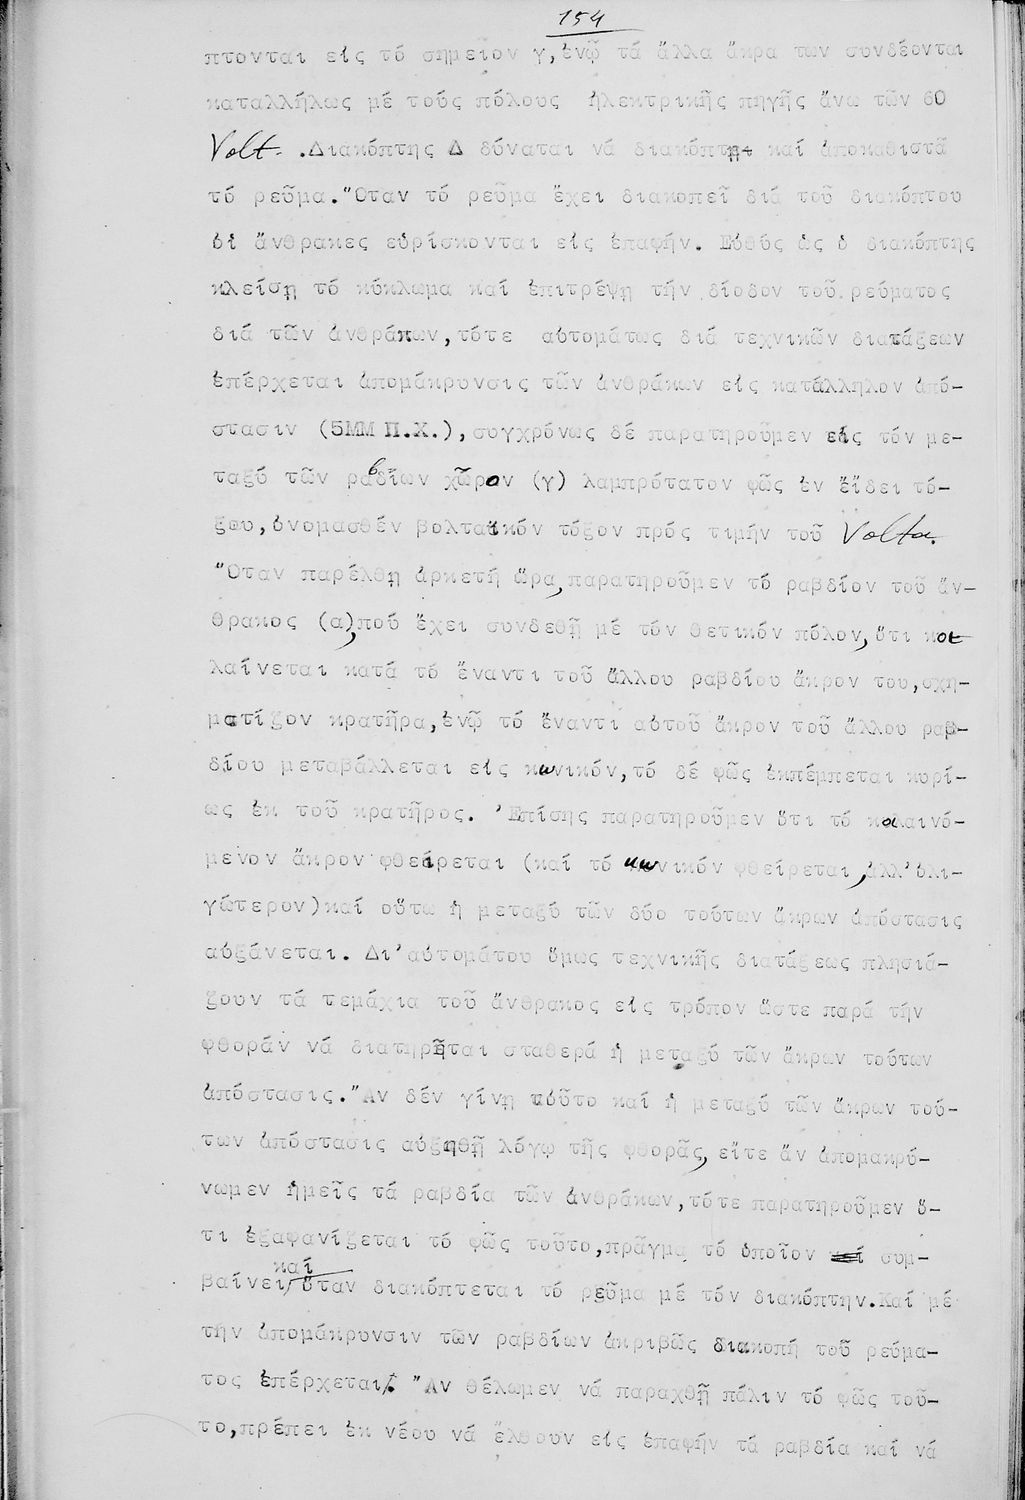 154
πτονται είς τό σημεῖον γ,ἐνῷ τά ἄλλα ἄκρα των συνδέονται
καταλλήλως μέ τούς πόλους ἠλεκτρικῆς πηγῆς ἄνω τῶν 60
Volt. .Διακόπτης Δ δύναται νά διακόπτῃ καί ἀποκαθιστᾶ
τό ρεῦμα."Οταν τό ρεῦμα ἔχει διακοπεῖ διά τοῦ διακόπτου
ὁἱ ἄνθρακες εὑρίσκονται είς ἐπαφήν. Εὐθύς ὡς ὁ διακόπτης
κλείσῃ τό κύκλωμα καί ἐπιτρέψῃ τήν δίοδον τοῦ ρεύματος
διά τῶν ἀνθράκων,τότε αὐτομάτως διά τεχνικῶν διατάξεων
ἐπέρχεται ἀπομάκρυνσις τῶν ἀνθράκων είς κατάλληλον ἀπό-
στασιν (5ΜΜ Π.Χ.),συγχρόνως δέ παρατηροῦμεν είς τόν με-
ταξύ τῶν ραβδίων χῶρον (γ) λαμπρότατον φῶς ἐν ἔίδει τό-
ξου,ὀνομασθέν βολταϊκόν τόξον πρός τιμήν τοῦ Volta.
"Οταν παρέλθῃ ἀρκετή ὥρα,παρατηροῦμεν τό ραβδίον τοῦ ἄν-
θρακος (α),πού ἔχει συνδεθῇ μέ τόν θετικόν πόλον,ὅτι κοι
λαίνεται κατά τό ἔναντι τοῦ ἄλλου ραβδίου ἄκρον του,σχη-
ματίζον κρατῆρα,ἐνῷ τό ἔναντι αὐτοῦ ἄκρον τοῦ ἄλλου ραβ-
δίου μεταβάλλεται είς κωνικόν,τό δέ φῶς ἐκπέμπεται κυρί-
ως ἐκ τοῦ κρατῆρος. 'Επίσης παρατηροῦμεν ὅτι τό κοιλαινό-
μενον ἄκρον φθείρεται (καί τό κωνικόν φθείρεται,ἀλλ'ὀλι-
γώτερον)καί οὕτω ἡ μεταξύ τῶν δύο τούτων ἄκρων ἀπόστασις
αὐξάνεται. Δι'αὐτομάτου ὅμως τεχνικῆς διατάξεως πλησιά-
ζουν τά τεμάχια τοῦ ἄνθρακος είς τρόπον ὥστε παρά τήν
φθοράν νά διατηρῆται σταθερά ἡ μεταξύ τῶν ἄκρων τούτων
ἀπόστασις."Αν δέν γίνῃ τοῦτο καί ἡ μεταξύ τῶν ἄκρων τού-
των ἀπόστασις αὐξηθῇ λόγῳ τῆς φθορᾶς, εἴτε ἄν ἀπομακρύ-
νωμεν ἡμεῖς τά ραβδία τῶν ἀνθράκων,τότε παρατηροῦμεν ὅ-
τι ἐξαφανίζεται τό φῶς τοῦτο,πρᾶγμα τό ὁποῖον συμ-
βαίνει, καί ὅταν διακόπτεται τό ρεῦμα μέ τόν διακόπτην.Καί μέ
τήν ἀπομάκρυνσιν τῶν ραβδίων ἀκριβῶς διακοπή τοῦ ρεύμα-
τος ἐπέρχεται. "Αν θέλωμεν νά παραχθῇ πάλιν τό φῶς τοῦ-
το,πρέπει ἐκ νέου νά ἔλθουν είς ἐπαφήν τά ραβδία καί νά